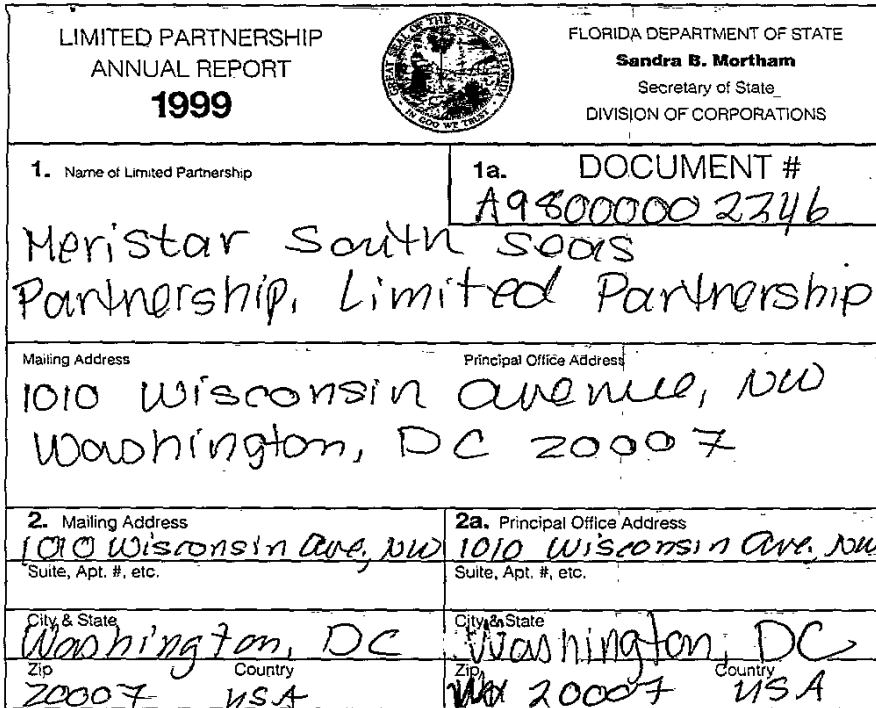 LIMITED PARTNERSHIP
ANNUAL REPORT
1999
GREAT SEAL OF THE STATE OF FLORIDA
IN GOD WE TRUST
FLORIDA DEPARTMENT OF STATE
Sandra B. Mortham
Secretary of State
DIVISION OF CORPORATIONS
1. Name of Limited Partnership
1a. DOCUMENT #
A98000002346
Meristar South Seas
Partnership, Limited Partnership
Mailing Address Principal Office Address
1010 Wisconsin Avenue, NW
Washington, DC 20007
2. Mailing Address
1010 Wisconsin Ave, NW
Suite, Apt. #, etc.
City & State
Washington, DC
Zip Country
20007 USA
2a. Principal Office Address
1010 Wisconsin Ave. NW
Suite, Apt. #, etc.
City & State
Washington, DC
Zip Country
20007 USA